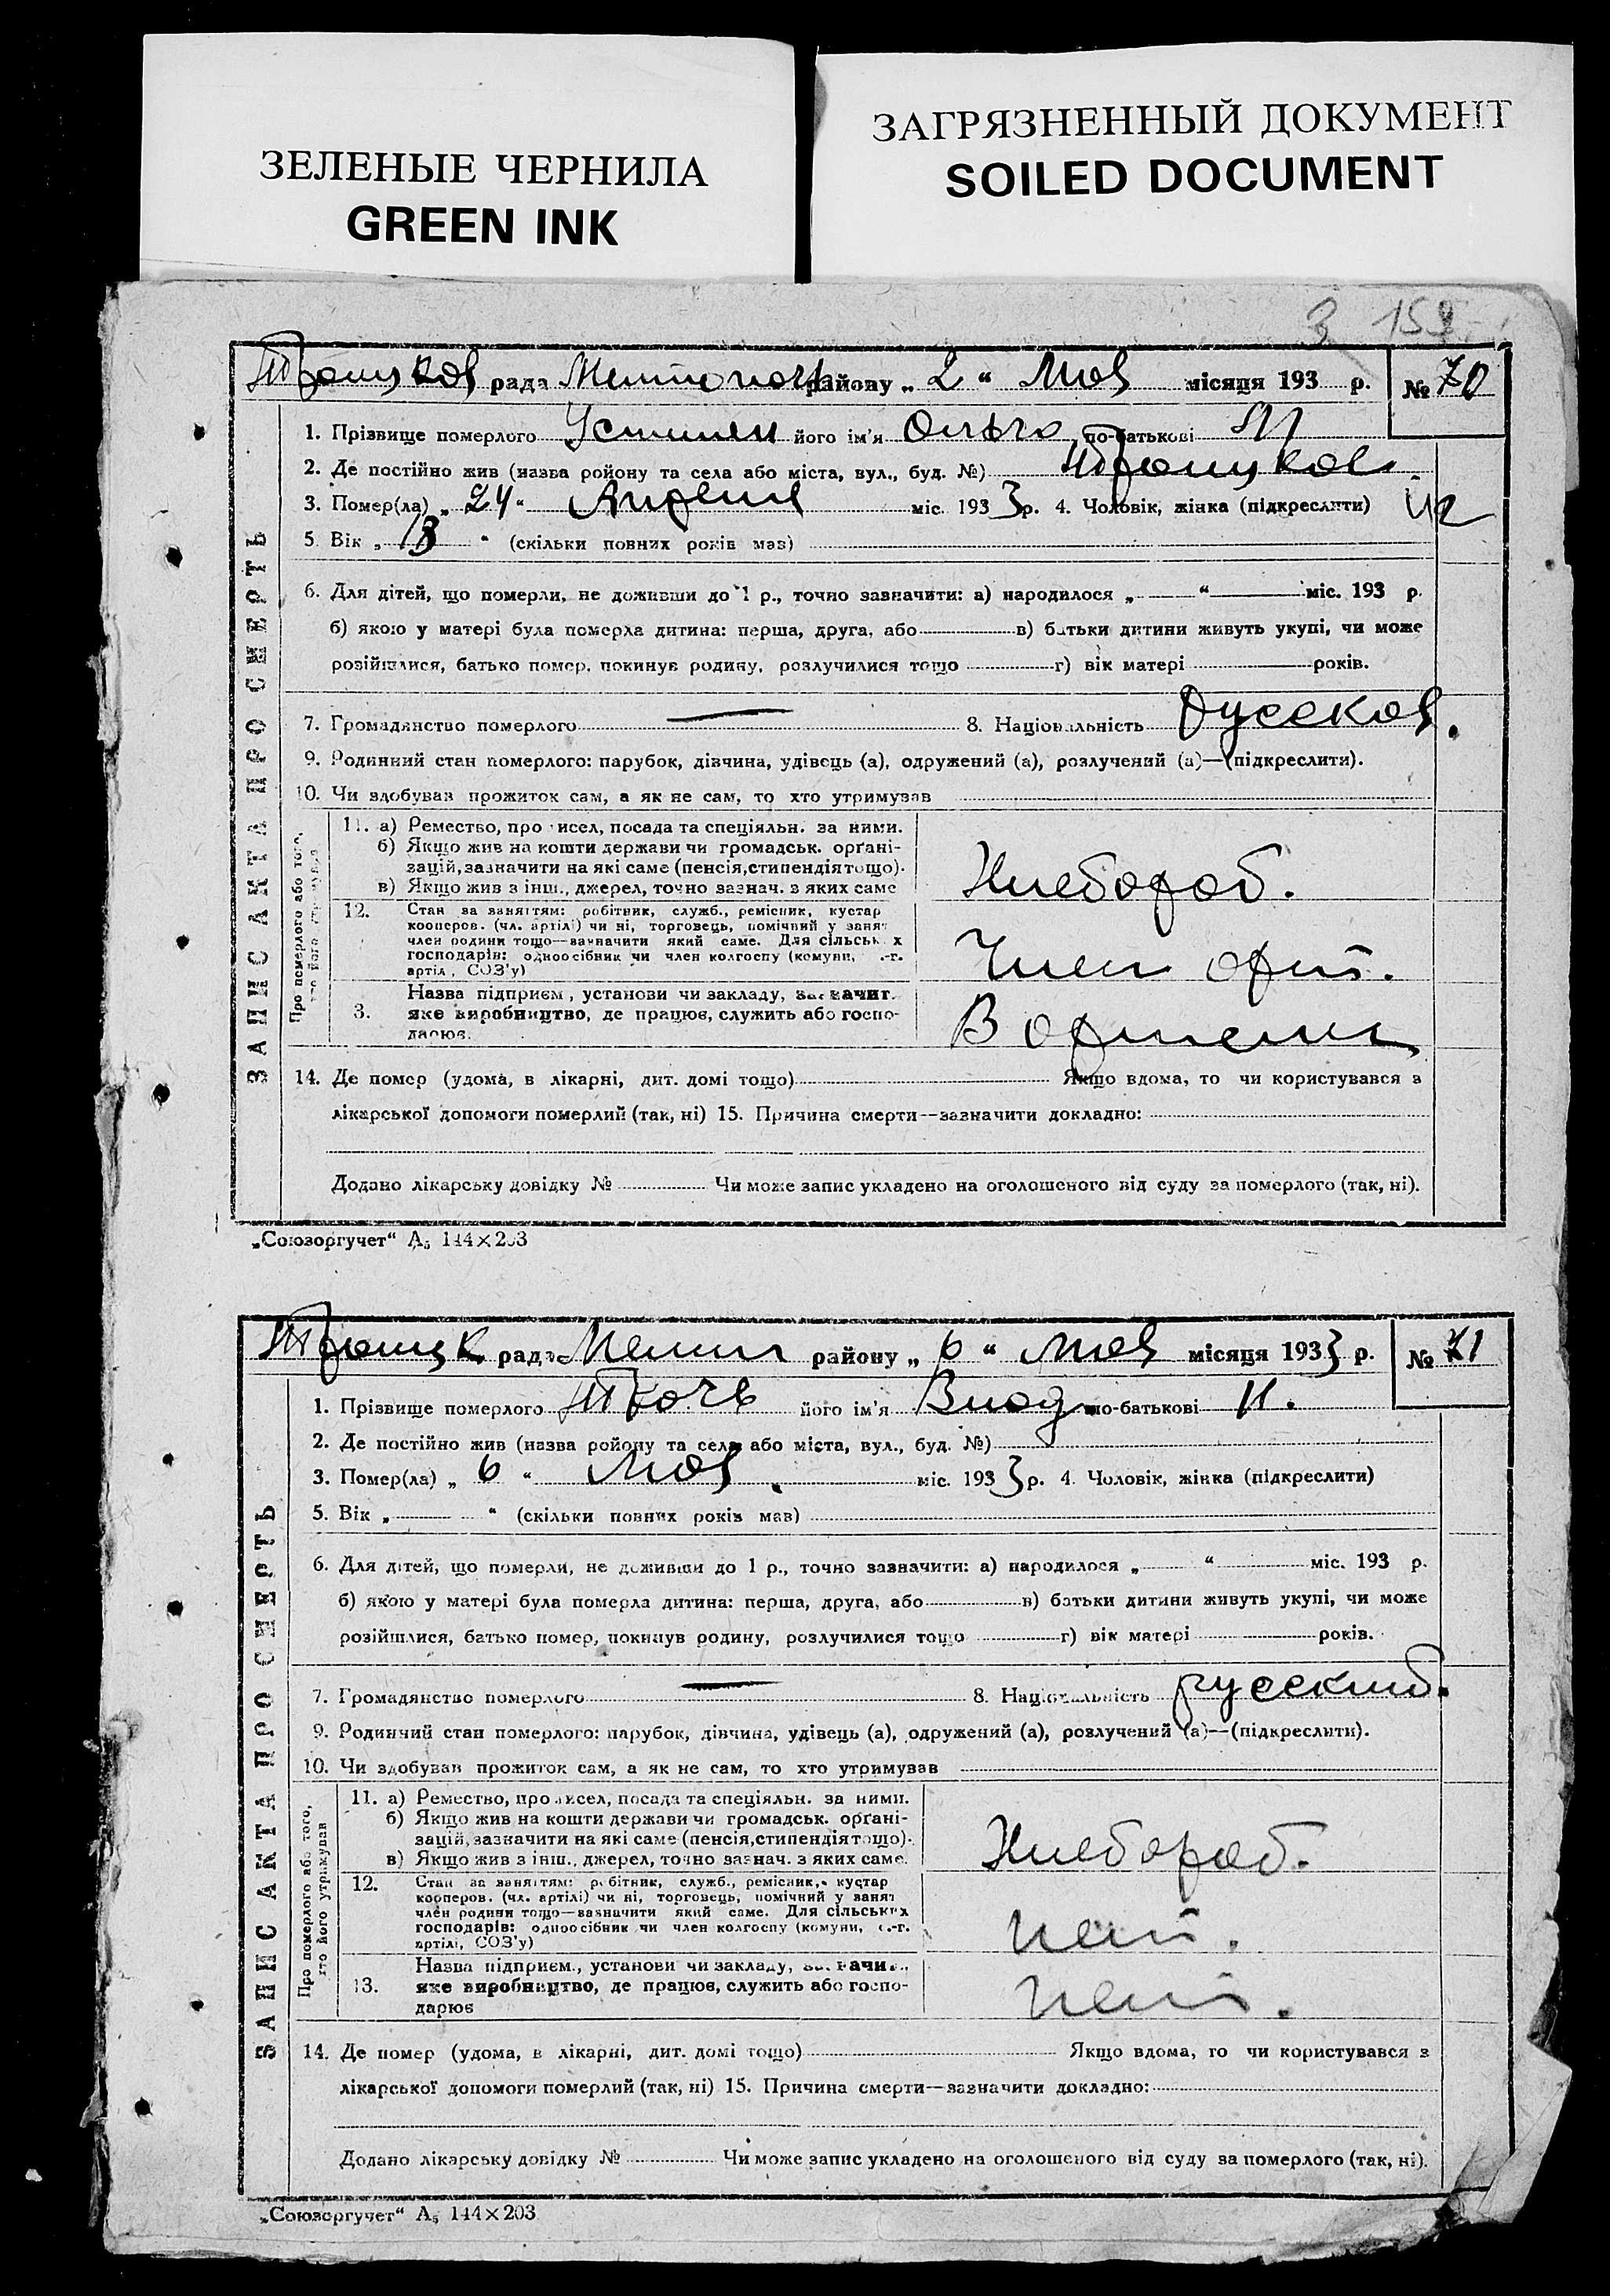 ЗЕЛЕНЫЕ ЧЕРНИЛА
GREEN INK
ЗАГРЯЗНЕННЫЙ ДОКУМЕНТ
SOILED DOCUMENT
3 159
Троицкая рада Мелитопол району „ 2 “ Мая місяця 193 р. № 70
ЗАПИС АКТА ПРО СМЕРТЬ
1. Прізвище померлого його ім'я Ольга по-батькові
2. Де постійно жив (назва ройону та села або міста, вул., буд. №) Троицкое
3. Помер(ла) „ 24 “ Апреля міс. 1933 р. 4. Чоловік, жінка (підкреслити)
5. Вік „ 13 “ (скільки повних років мав)
6. Для дітей, що померли, не доживши до 1 р., точно зазначити: а) народилося „ “ міс. 193 р.
б) якою у матері була померла дитина: перша, друга, або в) батьки дитини живуть укупі, чи може
розійшлися, батько помер, покинув родину, розлучилися тощо г) вік матері років.
7. Громадянство померлого — 8. Національність русская.
9. Родинний стан померлого: парубок, дівчина, удівець (а), одружений (а), розлучений (а)—(підкреслити).
10. Чи здобував прожиток сам, а як не сам, то хто утримував
Про померлого або того, хто його утримував
11. а) Ремество, промисел, посада та спеціяльн. за ними.
б) Якщо жив на кошти держави чи громадськ. орґані-
зацій, зазначити на які саме (пенсія, стипендія тощо).
в) Якщо жив з інш., джерел, точно зазнач. з яких саме
Хлебороб.
12. Стан за заняттям: робітник, служб., ремісник, кустар
кооперов. (чл. артілі) чи ні, торговець, помічний у занят
член родини тощо—зазначити який саме. Для сільськ х
господарів: одноосібник чи член колгоспу (комуни, .-г.
артіл, СОЗ'у)
Член арт.
3. Назва підприєм, установи чи закладу, зазначит.
яке виробництво, де працює, служить або госпо-
дарює.
В артели
14. Де помер (удома, в лікарні, дит. домі тощо) Якщо вдома, то чи користувався з
лікарської допомоги померлий (так, ні) 15. Причина смерти—зазначити докладно:
Додано лікарську довідку № Чи може запис укладено на оголошеного від суду за померлого (так, ні).
„Союзоргучет“ А5 144×203
Троицк рада Мелит району „ 6 “ Мая місяця 1933 р. № 71
ЗАПИС АКТА ПРО СМЕРТЬ
1. Прізвище померлого Ткачь його ім'я Влад. по-батькові И.
2. Де постійно жив (назва ройону та села або міста, вул., буд. №)
3. Помер(ла) „ 6 “ Мая міс. 1933 р. 4. Чоловік, жінка (підкреслити)
5. Вік „ “ (скільки повних років мав)
6. Для дітей, що померли, не доживши до 1 р., точно зазначити: а) народилося „ “ міс. 193 р.
б) якою у матері була померла дитина: перша, друга, або в) батьки дитини живуть укупі, чи може
розійшлися, батько помер, покинув родину, розлучилися тощо г) вік матері років.
7. Громадянство померлого — 8. Національність русский.
9. Родинний стан померлого: парубок, дівчина, удівець (а), одружений (а), розлучений (а)—(підкреслити).
10. Чи здобував прожиток сам, а як не сам, то хто утримував
Про померлого або того, хто його утримував
11. а) Ремество, промисел, посада та спеціяльн. за ними.
б) Якщо жив на кошти держави чи громадськ. орґані-
зацій, зазначити на які саме (пенсія, стипендія тощо).
в) Якщо жив з інш., джерел, точно зазнач. з яких саме.
Хлебороб.
12. Стан за заняттям: робітник, служб., ремісник, кустар
кооперов. (чл. артілі) чи ні, торговець, помічний у занят
член родини тощо—зазначити який саме. Для сільських
господарів: одноосібник чи член колгоспу (комуни, с.-г.
артілі, СОЗ'у)
нет.
13. Назва підприєм., установи чи закладу, зазначи..
яке виробництво, де працює, служить або госпо-
дарює
нет.
14. Де помер (удома, в лікарні, дит. домі тощо) Якщо вдома, то чи користувався з
лікарської допомоги померлий (так, ні) 15. Причина смерти—зазначити докладно:
Додано лікарську довідку № Чи може запис укладено на оголошеного від суду за померлого (так, ні).
„Союзоргучет“ А5 144×203